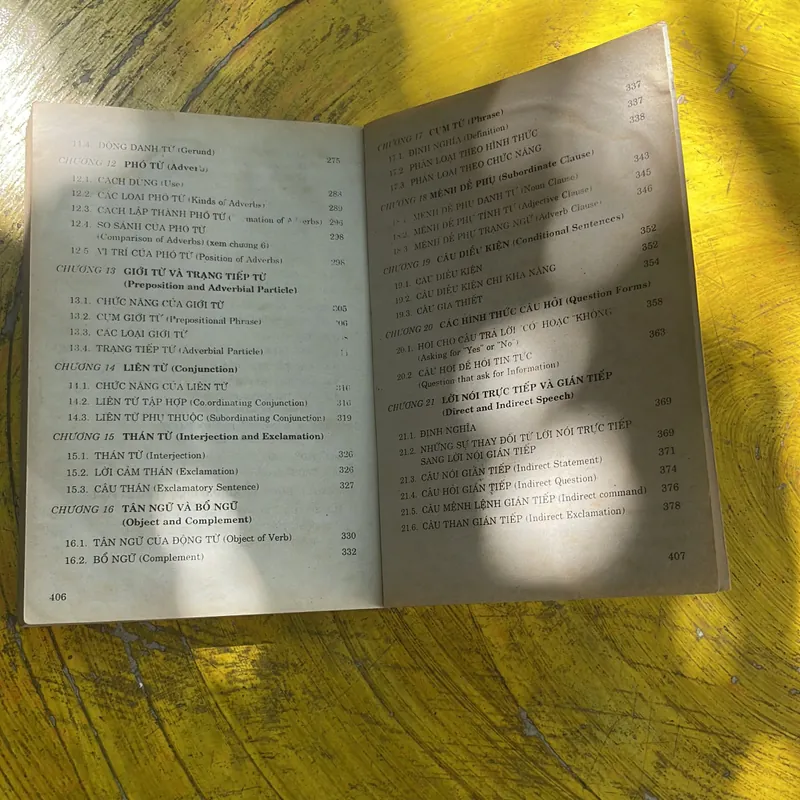 11.4. ĐỘNG DANH TỪ (Gerund) 275
CHƯƠNG 12 PHÓ TỪ (Adverbs)
12.1. CÁCH DÙNG (Use)
12.2. CÁC LOẠI PHÓ TỪ (Kinds of Adverbs) 283
12.3. CÁCH LẬP THÀNH PHÓ TỪ ( mation of A verbs) 296
12.4. SO SÁNH CỦA PHÓ TỪ
(Comparison of Adverbs) (xem chương 6) 298
12.5 VỊ TRÍ CỦA PHÓ TỪ (Position of Adverbs) 298
CHƯƠNG 13 GIỚI TỪ VÀ TRẠNG TIẾP TỪ
(Preposition and Adverbial Particle)
13.1. CHỨC NĂNG CỦA GIỚI TỪ 305
13.2. CỤM GIỚI TỪ (Prepositional Phrase)
13.3. CÁC LOẠI GIỚI TỪ
13.4. TRẠNG TIẾP TỪ (Adverbial Particle)
CHƯƠNG 14 LIÊN TỪ (Conjunction)
14.1. CHỨC NĂNG CỦA LIÊN TỪ 316
14.2. LIÊN TỪ TẬP HỢP (Co.ordinating Conjunction) 316
14.3. LIÊN TỪ PHỤ THUỘC (Subordinating Conjunction) 319
CHƯƠNG 15 THÁN TỪ (Interjection and Exclamation)
15.1. THÁN TỪ (Interjection) 326
15.2. LỜI CẢM THÁN (Exclamation) 326
15.3. CÂU THÁN (Exclamatory Sentence) 327
CHƯƠNG 16 TÂN NGỮ VÀ BỔ NGỮ
(Object and Complement)
16.1. TÂN NGỮ CỦA ĐỘNG TỪ (Object of Verb) 330
16.2. BỔ NGỮ (Complement) 332
406
CHƯƠNG 17 CỤM TỪ (Phrase)
17.1. ĐỊNH NGHĨA (Definition) 337
17.2 PHÂN LOẠI THEO HÌNH THỨC 337
17.3 PHÂN LOẠI THEO CHỨC NĂNG 338
CHƯƠNG 18 MỆNH ĐỀ PHỤ (Subordinate Clause)
MỆNH ĐỀ PHỤ DANH TỪ (Noun Clause) 343
MỆNH ĐỀ PHỤ TÍNH TỪ (Adjective Clause) 345
18.3 MỆNH ĐỀ PHỤ TRẠNG NGỮ (Adverb Clause) 346
CHƯƠNG 19 CÂU ĐIỀU KIỆN (Conditional Sentences)
19.1. CÂU ĐIỀU KIỆN 352
19.2. CÂU ĐIỀU KIỆN CHỈ KHẢ NĂNG 352
19.3. CÂU GIẢ THIẾT 354
CHƯƠNG 20 CÁC HÌNH THỨC CÂU HỎI (Question Forms)
20.1. HỎI CHO CÂU TRẢ LỜI "CÓ" HOẶC "KHÔNG" 358
(Asking for "Yes" or "No")
20.2. CÂU HỎI ĐỂ HỎI TIN TỨC 363
(Question that ask for Information)
CHƯƠNG 21 LỜI NÓI TRỰC TIẾP VÀ GIÁN TIẾP
(Direct and Indirect Speech)
21.1. ĐỊNH NGHĨA 369
21.2. NHỮNG SỰ THAY ĐỔI TỪ LỜI NÓI TRỰC TIẾP
SANG LỜI NÓI GIÁN TIẾP 369
21.3. CÂU NÓI GIÁN TIẾP (Indirect Statement) 371
21.4. CÂU HỎI GIÁN TIẾP (Indirect Question) 374
21.5. CÂU MỆNH LỆNH GIÁN TIẾP (Indirect command) 376
21.6. CÂU THAN GIÁN TIẾP (Indirect Exclamation) 378
407